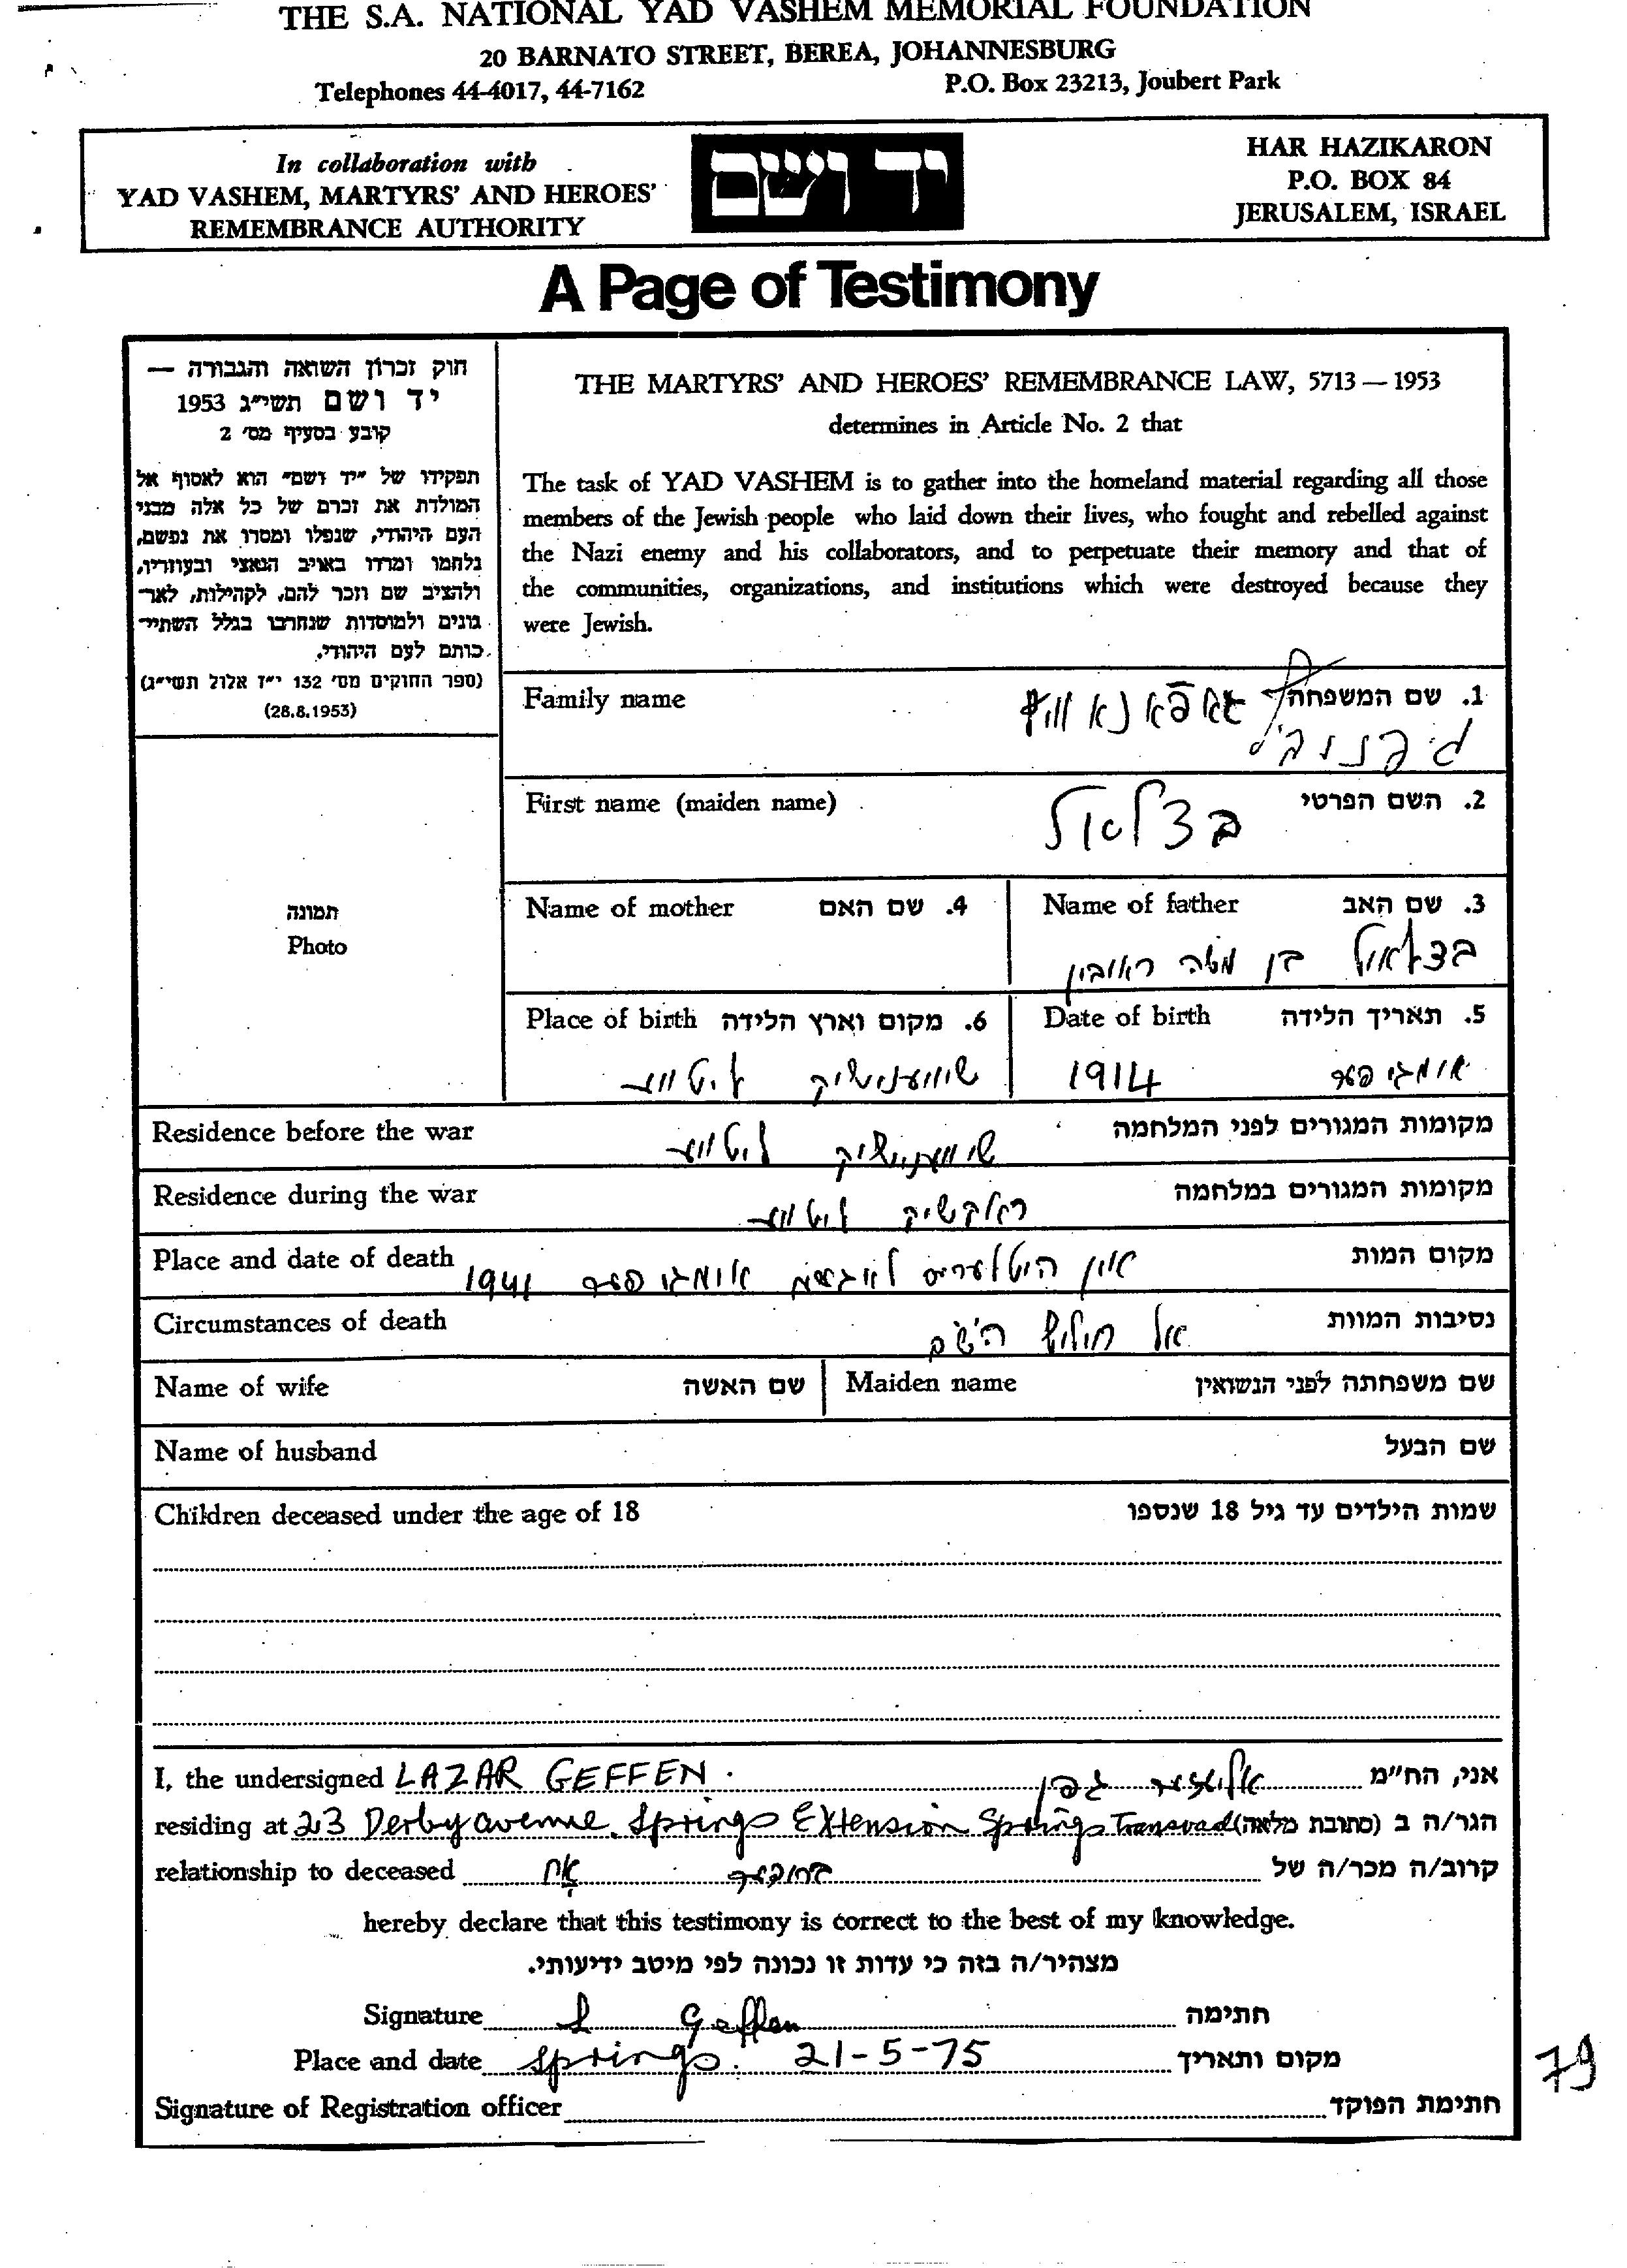 THE S.A. NATIONAL YAD VASHEM MEMORIAL FOUNDATION
20 BARNATO STREET, BEREA, JOHANNESBURG
Telephones 44-4017, 44-7162 P.O. Box 23213, Joubert Park
In collaboration with
YAD VASHEM, MARTYRS' AND HEROES'
REMEMBRANCE AUTHORITY
יד ושם
HAR HAZIKARON
P.O. BOX 84
JERUSALEM, ISRAEL
A Page of Testimony
חוק זכרון השואה והגבורה —
יד ושם תשי״ג 1953
קובע בסעיף מס׳ 2
תפקידו של ״יד ושם״ הוא לאסוף אל
המולדת את זכרם של כל אלה מבני
העם היהודי, שנפלו ומסרו את נפשם,
נלחמו ומרדו באויב הנאצי ובעוזריו,
ולהציב שם וזכר להם, לקהילות, לאר־
גונים ולמוסדות שנחרבו בגלל השתיי־
כותם לעם היהודי.
(ספר החוקים מס׳ 132 י״ז אלול תשי״ג)
(28.8.1953)
THE MARTYRS' AND HEROES' REMEMBRANCE LAW, 5713 — 1953
determines in Article No. 2 that
The task of YAD VASHEM is to gather into the homeland material regarding all those
members of the Jewish people who laid down their lives, who fought and rebelled against
the Nazi enemy and his collaborators, and to perpetuate their memory and that of
the communities, organizations, and institutions which were destroyed because they
were Jewish.
Family name 1. שם המשפחה
First name (maiden name) בצלאל 2. השם הפרטי
תמונה
Photo
Name of mother 4. שם האם Name of father 3. שם האב
בצלאל בן משה ראובין
Place of birth 6. מקום וארץ הלידה Date of birth 5. תאריך הלידה
ליטווע 1914 אומגיפער
Residence before the war ליטווע מקומות המגורים לפני המלחמה
Residence during the war ראקישיק ליטווע מקומות המגורים במלחמה
Place and date of death און היטלערס אומגיפער 1941 מקום המות
Circumstances of death נסיבות המוות
Name of wife שם האשה Maiden name שם משפחתה לפני הנשואין
Name of husband שם הבעל
Children deceased under the age of 18 שמות הילדים עד גיל 18 שנספו
I, the undersigned LAZAR GEFFEN. אליעזר גפן אני, הח״מ
residing at 23 Derby avenue. Springs Extension Springs Transvaal הגר/ה ב (כתובת מלאה)
relationship to deceased קרוב/ה מכר/ה של
hereby declare that this testimony is correct to the best of my knowledge.
מצהיר/ה בזה כי עדות זו נכונה לפי מיטב ידיעותי.
Signature L Geffen חתימה
Place and date Springs. 21-5-75 מקום ותאריך
Signature of Registration officer חתימת הפוקד
79